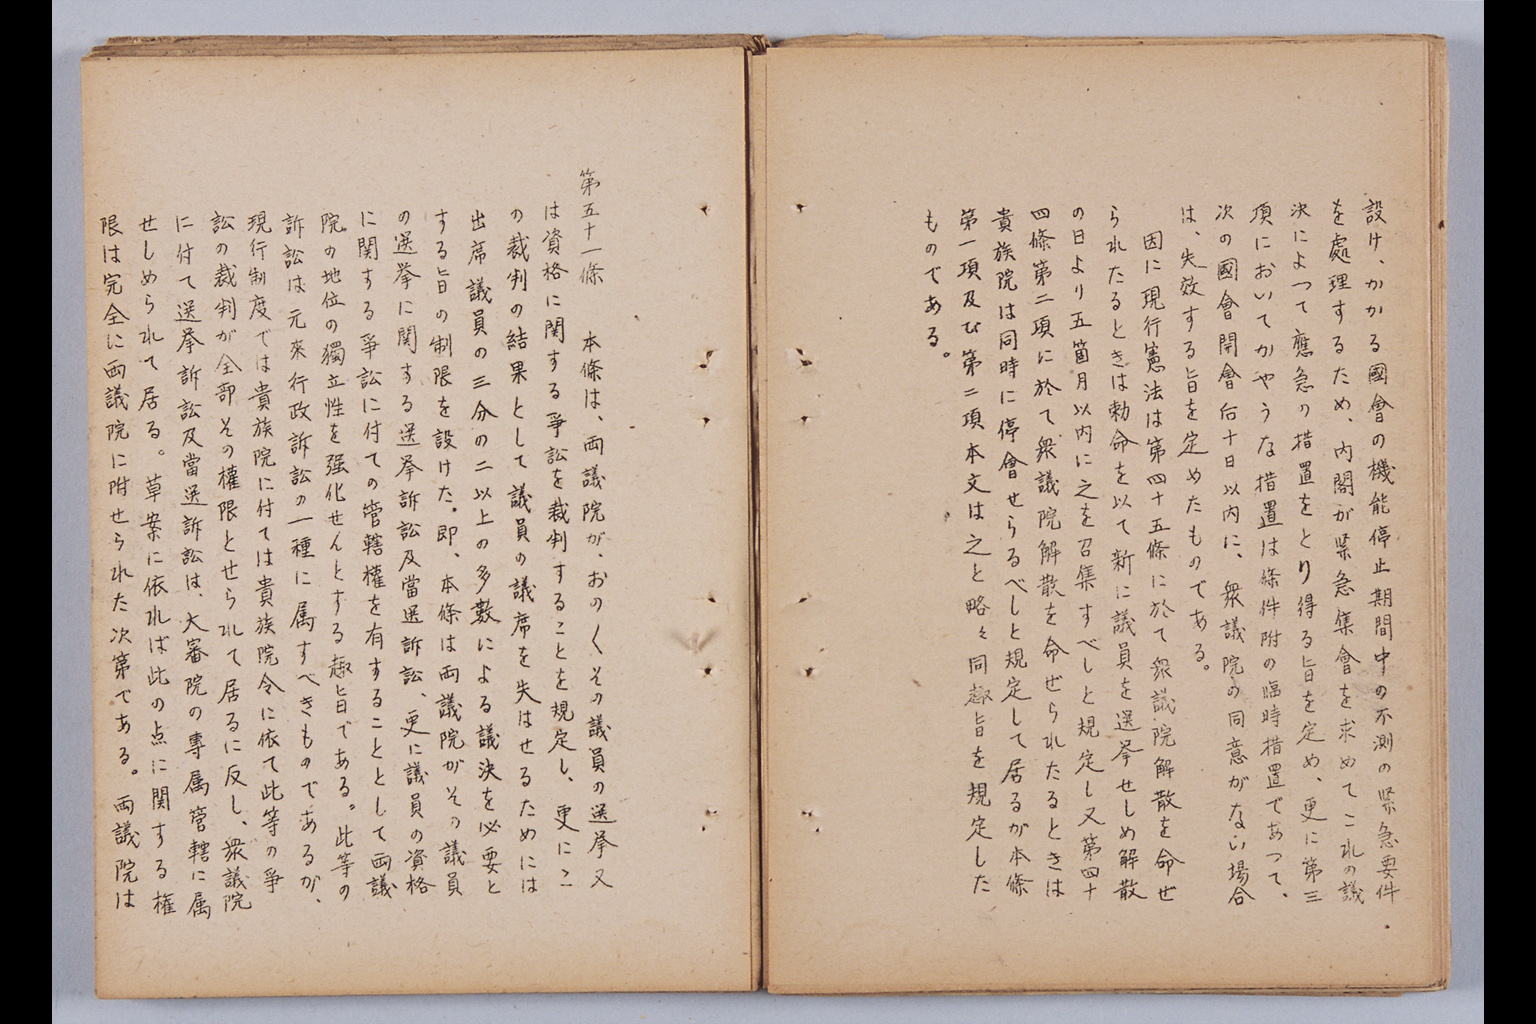 設け、かかる國會の機能停止期間中の不測の緊急要件
を處理するため、内閣が緊急集會を求めてこれの議
決によつて應急の措置をとり得る旨を定め、更に第三
項においてかやうな措置は條件附の臨時措置であつて、
次の國會開會后十日以内に、衆議院の同意がない場合
は、失效する旨を定めたものである。
因に現行憲法は第四十五條に於て衆議院解散を命ぜ
られたるときは勅命を以て新に議員を選挙せしめ解散
の日より五箇月以内に之を召集すべしと規定し又第四十
四條第二項に於て衆議院解散を命ぜられたるときは
貴族院は同時に停會せらるべしと規定して居るが本條
第一項及び第二項本文は之と略々同趣旨を規定した
ものである。
第五十一條　本條は、両議院が、おの〱その議員の選挙又
は資格に関する爭訟を裁判することを規定し、更にこ
の裁判の結果として議員の議席を失はせるためには
出席議員の三分の二以上の多数による議決を必要と
する旨の制限を設けた。即、本條は両議院がその議員
の選挙に関する選挙訴訟及當選訴訟、更に議員の資格
に関する爭訟に付ての管轄權を有することとして両議
院の地位の獨立性を强化せんとする趣旨である。此等の
訴訟は元來行政訴訟の一種に属すべきものであるが、
現行制度では貴族院に付ては貴族院令に依て此等の爭
訟の裁判が全部その權限とせられて居るに反し、衆議院
に付て選挙訴訟及當選訴訟は、大審院の專属管轄に属
せしめられて居る。草案に依れば此の点に関する權
限は完全に両議院に附せられた次第である。両議院は